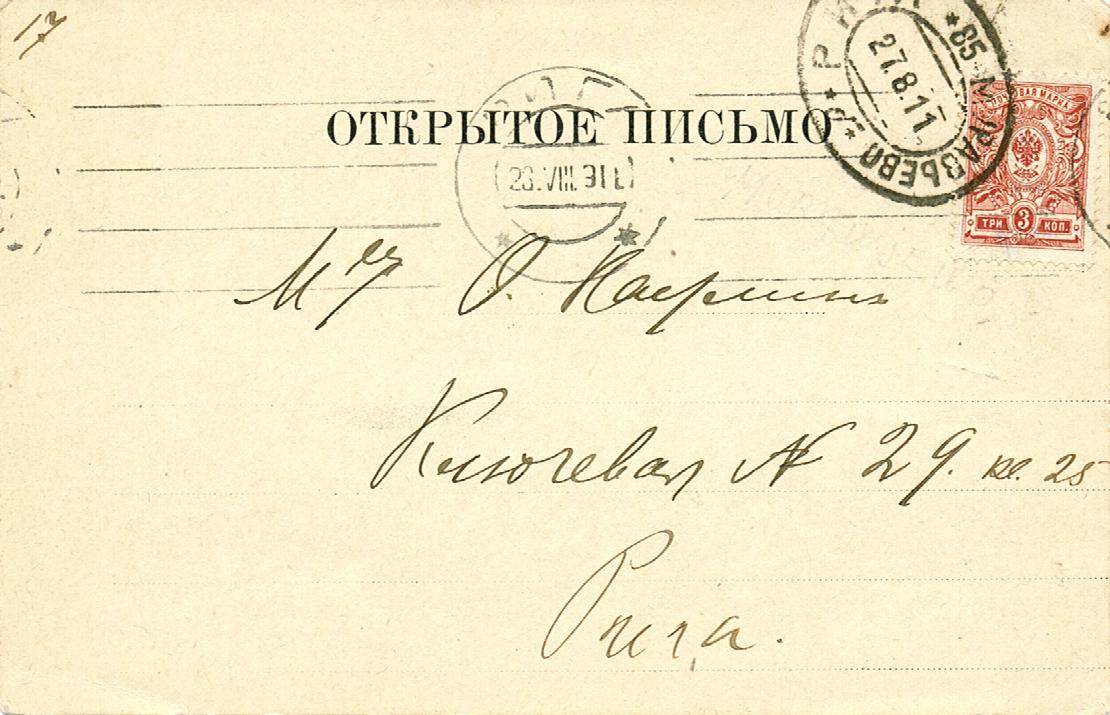 17
ОТКРЫТОЕ ПИСЬМО
*85 МУРАВЬЕВО
27.8.11
ПОЧТОВАЯ МАРКА
3
ТРИ КОП.
28.VIII.911
О.
Ключевая № 29. кв. 25
Рига.